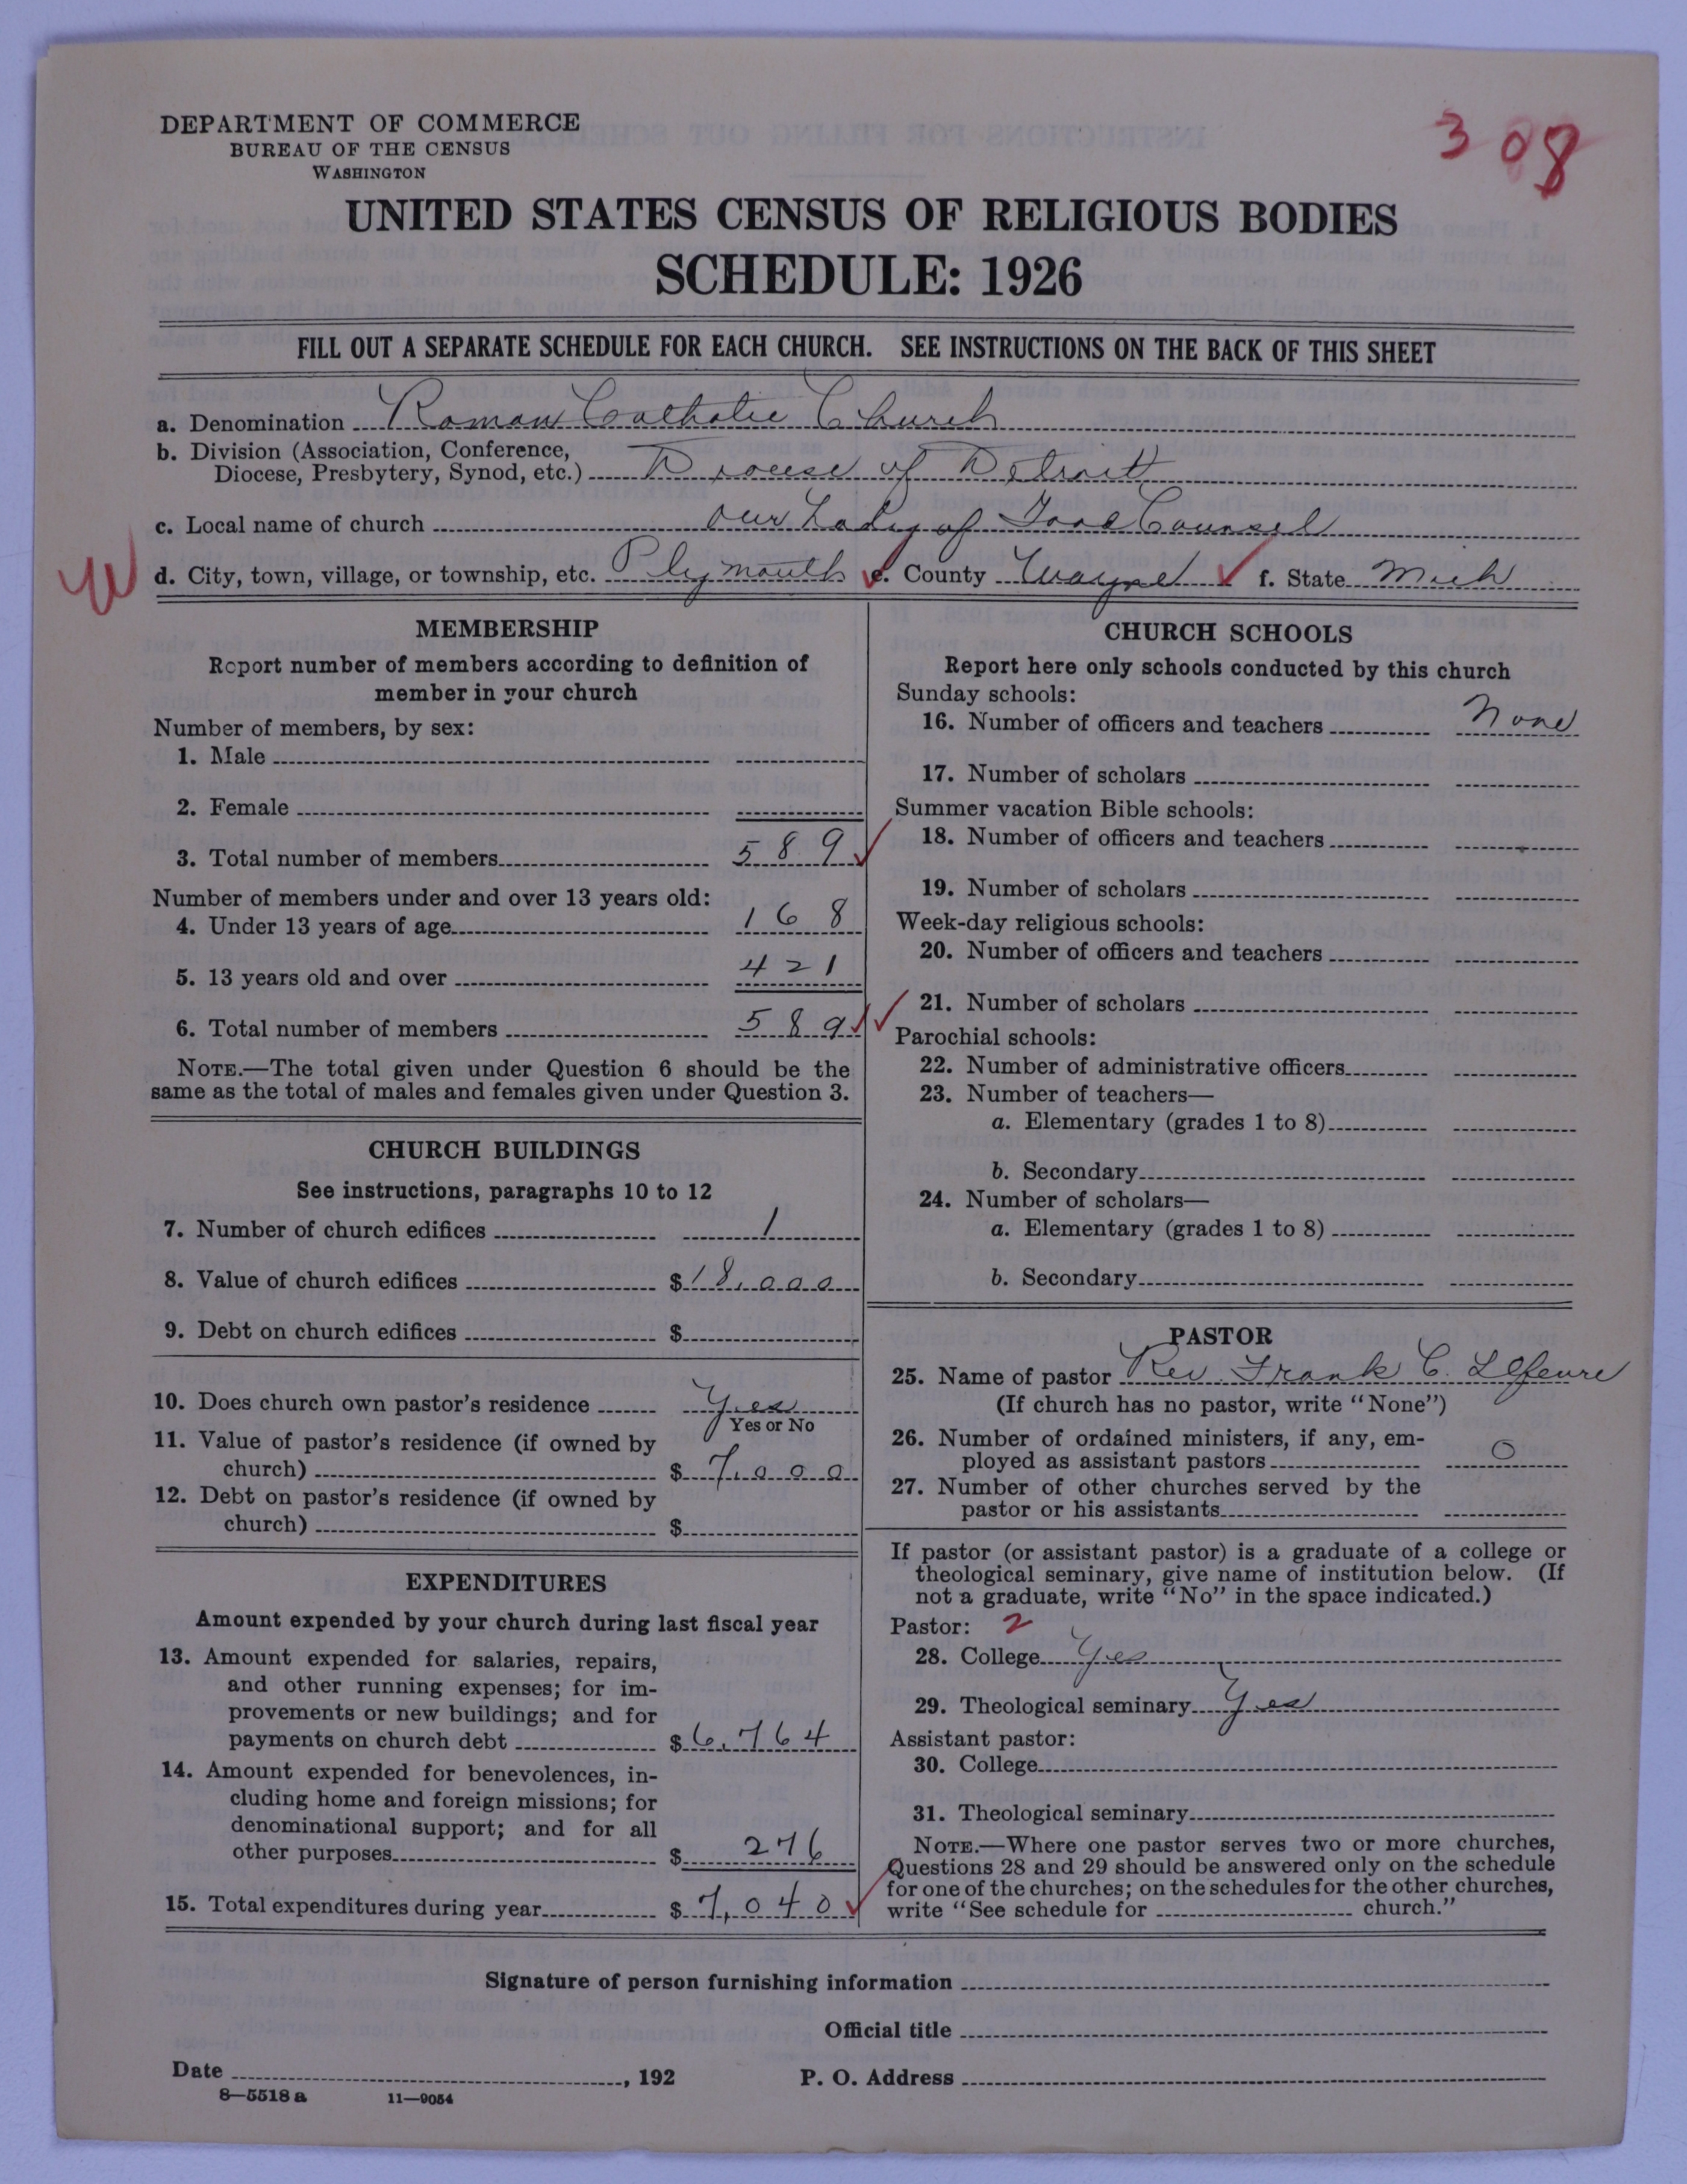 DEPARTMENT OF COMMERCE
BUREAU OF THE CENSUS
WASHINGTON
308
UNITED STATES CENSUS OF RELIGIOUS BODIES
SCHEDULE: 1926
FILL OUT A SEPARATE SCHEDULE FOR EACH CHURCH. SEE INSTRUCTIONS ON THE BACK OF THIS SHEET
a. Denomination Roman Catholic Church
b. Division (Association, Conference,
Diocese, Presbytery, Synod, etc.) Diocese of Detroit
c. Local name of church Our Lady of Good Counsel
W d. City, town, village, or township, etc. Plymouth e. County Wayne f. State Mich
MEMBERSHIP
Report number of members according to definition of
member in your church
Number of members, by sex:
1. Male
2. Female
3. Total number of members 589
Number of members under and over 13 years old:
4. Under 13 years of age 168
5. 13 years old and over 421
6. Total number of members 589
NOTE.—The total given under Question 6 should be the
same as the total of males and females given under Question 3.
CHURCH BUILDINGS
See instructions, paragraphs 10 to 12
7. Number of church edifices 1
8. Value of church edifices $18,000
9. Debt on church edifices $
10. Does church own pastor's residence Yes
Yes or No
11. Value of pastor's residence (if owned by
church) $7,000
12. Debt on pastor's residence (if owned by
church) $
EXPENDITURES
Amount expended by your church during last fiscal year
13. Amount expended for salaries, repairs,
and other running expenses; for im-
provements or new buildings; and for
payments on church debt $6,764
14. Amount expended for benevolences, in-
cluding home and foreign missions; for
denominational support; and for all
other purposes $276
15. Total expenditures during year $7,040
CHURCH SCHOOLS
Report here only schools conducted by this church
Sunday schools:
16. Number of officers and teachers None
17. Number of scholars
Summer vacation Bible schools:
18. Number of officers and teachers
19. Number of scholars
Week-day religious schools:
20. Number of officers and teachers
21. Number of scholars
Parochial schools:
22. Number of administrative officers
23. Number of teachers—
a. Elementary (grades 1 to 8)
b. Secondary
24. Number of scholars—
a. Elementary (grades 1 to 8)
b. Secondary
PASTOR
25. Name of pastor Rev. Frank C. Lefevre
(If church has no pastor, write "None")
26. Number of ordained ministers, if any, em-
ployed as assistant pastors 0
27. Number of other churches served by the
pastor or his assistants
If pastor (or assistant pastor) is a graduate of a college or
theological seminary, give name of institution below. (If
not a graduate, write "No" in the space indicated.)
Pastor: 2
28. College Yes
29. Theological seminary Yes
Assistant pastor:
30. College
31. Theological seminary
NOTE.—Where one pastor serves two or more churches,
Questions 28 and 29 should be answered only on the schedule
for one of the churches; on the schedules for the other churches,
write "See schedule for church."
Signature of person furnishing information
Official title
Date , 192 P. O. Address
8—5518 a 11—9054